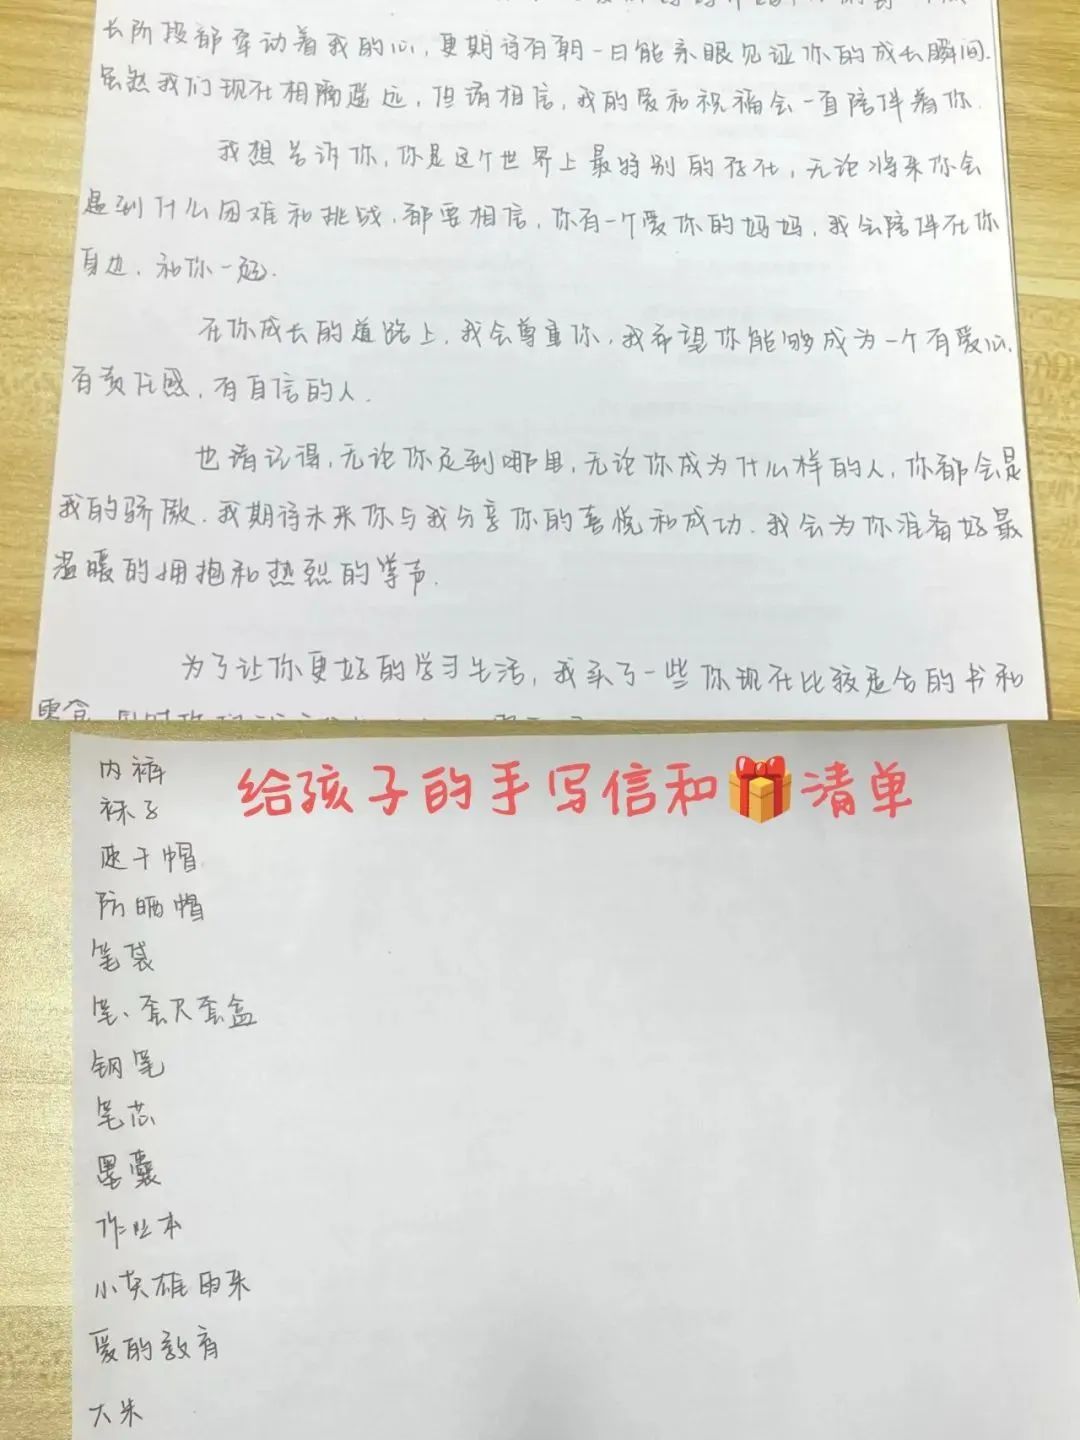 长阶段都牵动着我的心，更期待有朝一日能亲眼见证你的成长瞬间.
虽然我们现在相隔遥远，但请相信，我的爱和祝福会一直陪伴着你.
我想告诉你，你是这个世界上最特别的存在，无论将来你会
遇到什么困难和挑战，都要相信，你有一个爱你的妈妈，我会陪伴在你
身边，和你一起.
在你成长的道路上，我会尊重你，我希望你能够成为一个有爱心，
有责任感，有自信的人.
也请记得，无论你走到哪里，无论你成为什么样的人，你都会是
我的骄傲.我期待未来你与我分享你的喜悦和成功.我会为你准备好最
温暖的拥抱和热烈的掌声.
为了让你更好的学习生活，我买了一些你现在比较适合的书和
零食
给孩子的手写信和🎁清单
内裤
袜子
速干帽
防晒帽
笔袋
笔、套尺套盒
钢笔
笔芯
墨囊
作业本
小英雄雨来
爱的教育
大米